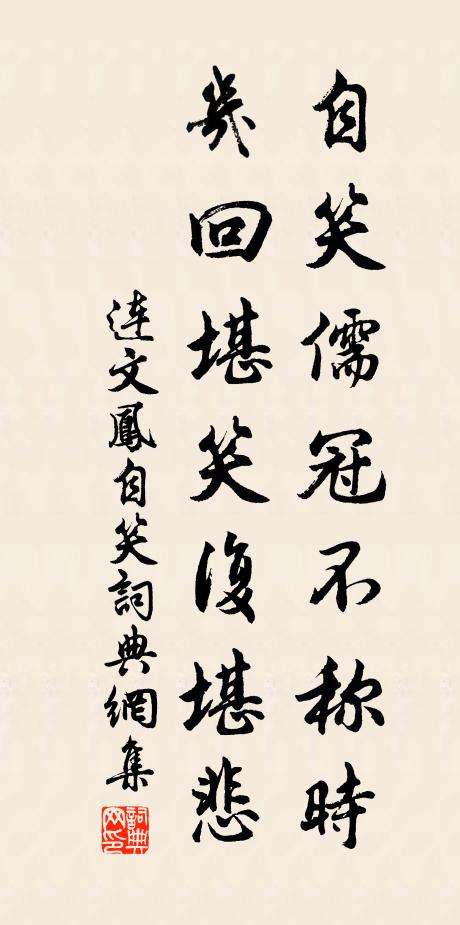 自笑儒冠不称時
幾回堪笑復堪悲
連文鳳自笑詞典網集
詞典網印